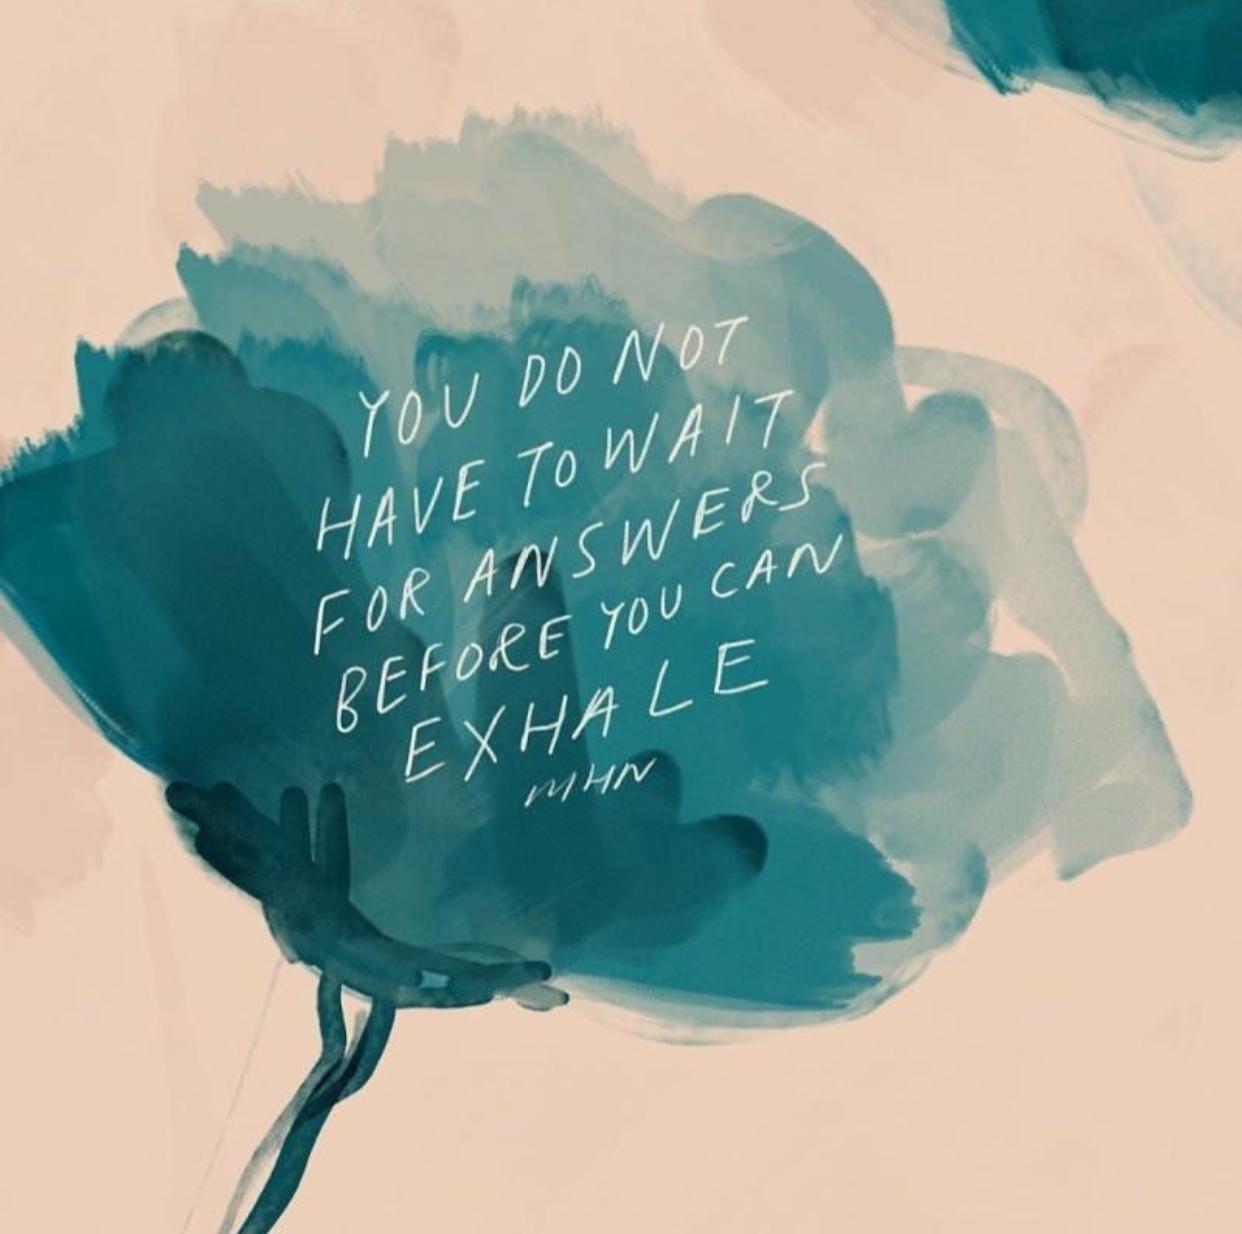 YOU DO NOT
HAVE TO WAIT
FOR ANSWERS
BEFORE YOU CAN
EXHALE
MHN